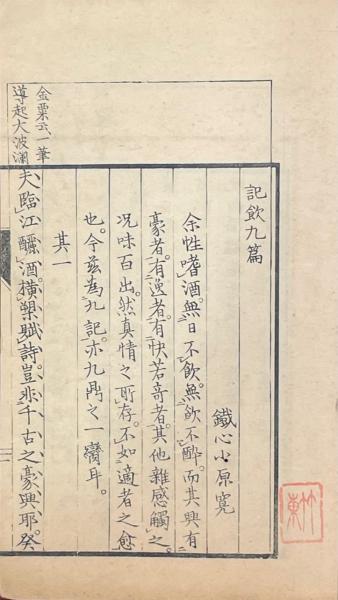 記飲九篇
鐵心小原寛
余性嗜酒。無日不飲。無飲不酔。而其興有
豪者。有逸者。有快若奇者。其他雜感觸之。
况味百出。然真情之所存。不如適者之愈
也。今茲為九記。亦九鼎之一臠耳。
其一
金粟云、一筆
導起大波瀾
夫臨江釃酒。横槊賦詩。豈非千古之豪興耶。癸